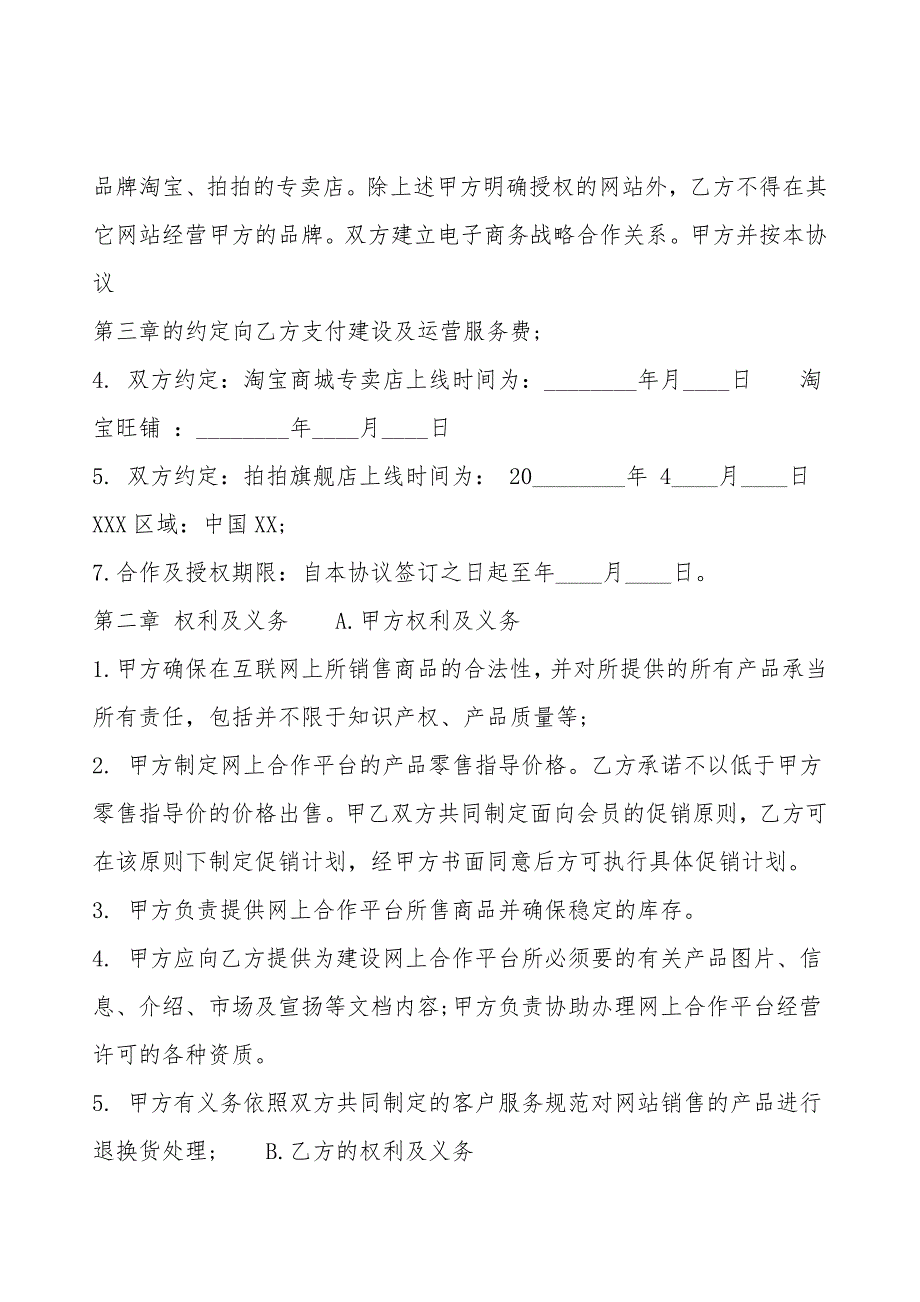 品牌淘宝、拍拍的专卖店。除上述甲方明确授权的网站外，乙方不得在其
它网站经营甲方的品牌。双方建立电子商务战略合作关系。甲方并按本协
议
第三章的约定向乙方支付建设及运营服务费;
4. 双方约定：淘宝商城专卖店上线时间为：________年月____日 淘
宝旺铺 ：________年____月____日
5. 双方约定：拍拍旗舰店上线时间为： 20________年 4____月____日
XXX 区域：中国 XX;
7.合作及授权期限：自本协议签订之日起至年____月____日。
第二章 权利及义务 A.甲方权利及义务
1.甲方确保在互联网上所销售商品的合法性，并对所提供的所有产品承当
所有责任，包括并不限于知识产权、产品质量等;
2. 甲方制定网上合作平台的产品零售指导价格。乙方承诺不以低于甲方
零售指导价的价格出售。甲乙双方共同制定面向会员的促销原则，乙方可
在该原则下制定促销计划，经甲方书面同意后方可执行具体促销计划。
3. 甲方负责提供网上合作平台所售商品并确保稳定的库存。
4. 甲方应向乙方提供为建设网上合作平台所必须要的有关产品图片、信
息、介绍、市场及宣扬等文档内容;甲方负责协助办理网上合作平台经营
许可的各种资质。
5. 甲方有义务依照双方共同制定的客户服务规范对网站销售的产品进行
退换货处理; B.乙方的权利及义务